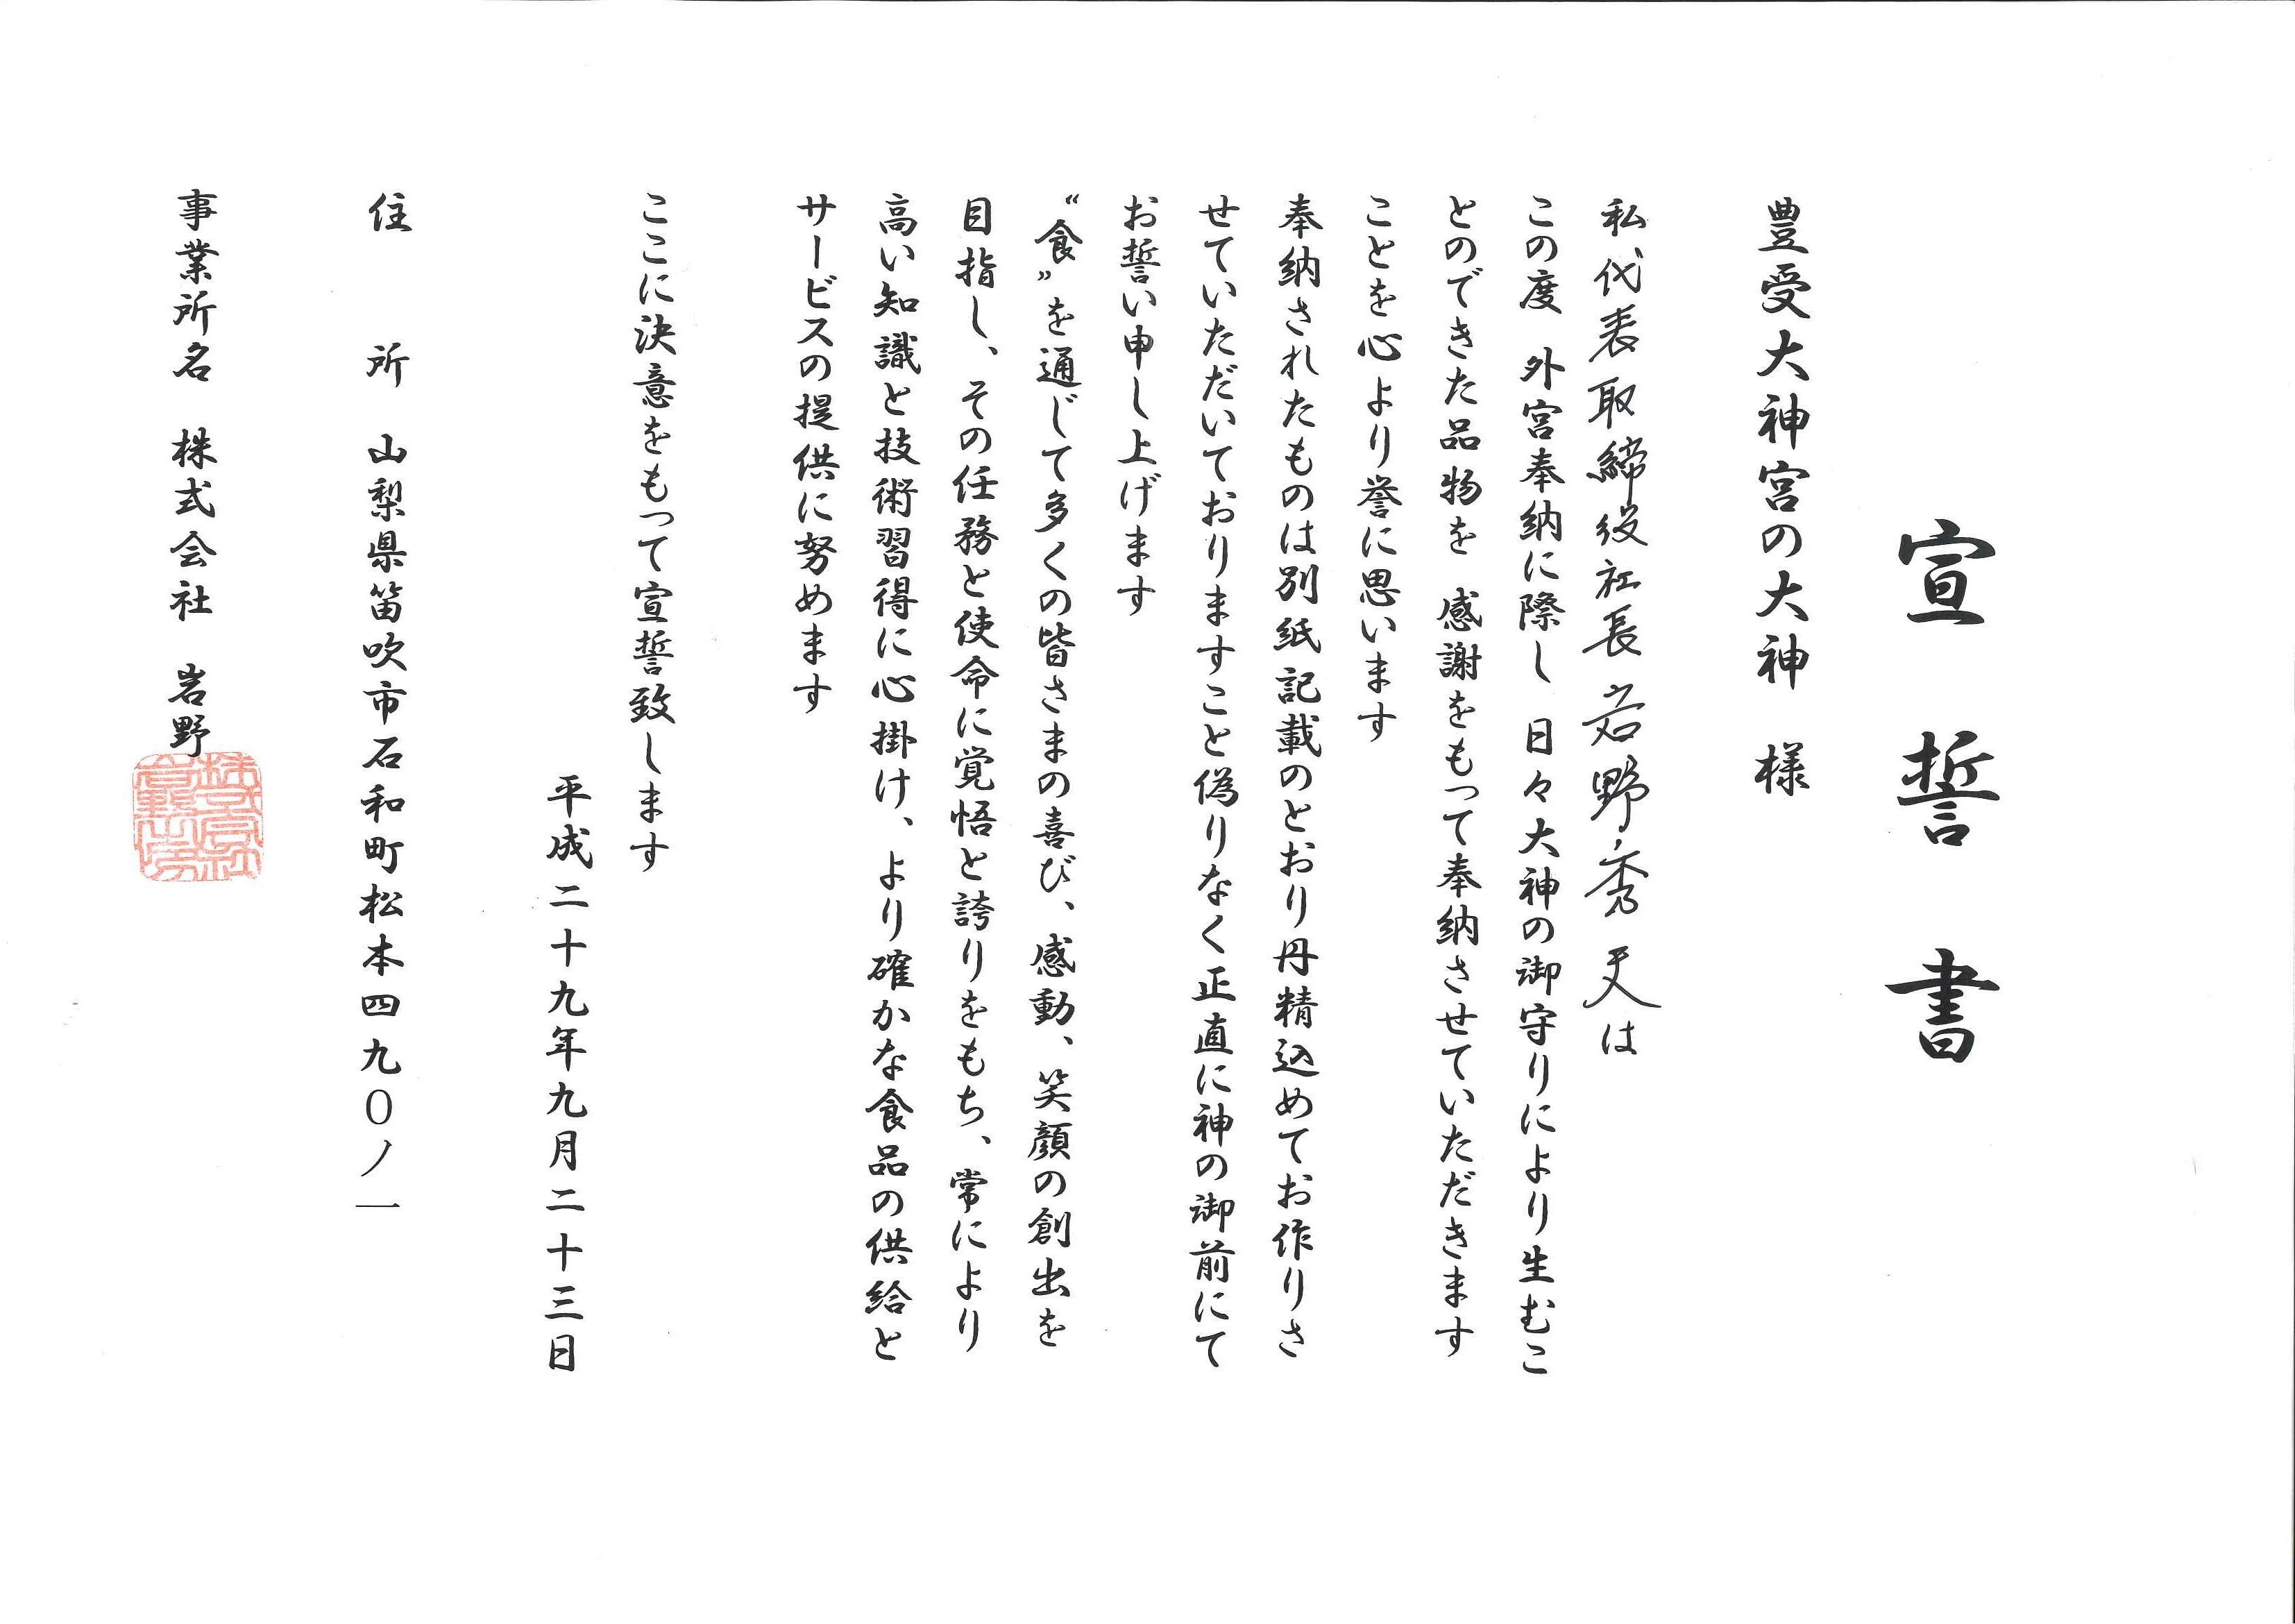 宣誓書
豊受大神宮の大神 様
私 代表取締役社長 岩野秀夫は
この度 外宮奉納に際し 日々大神の御守りにより生むこ
とのできた品物を 感謝をもって奉納させていただきます
ことを心より誉に思います
奉納されたものは別紙記載のとおり丹精込めてお作りさ
せていただいておりますこと偽りなく正直に神の御前にて
お誓い申し上げます
“食”を通じて多くの皆さまの喜び、感動、笑顔の創出を
目指し、その任務と使命に覚悟と誇りをもち、常により
高い知識と技術習得に心掛け、より確かな食品の供給と
サービスの提供に努めます
ここに決意をもって宣誓致します
平成二十九年九月二十三日
住 所 山梨県笛吹市石和町松本四九〇ノ一
事業所名 株式会社 岩野